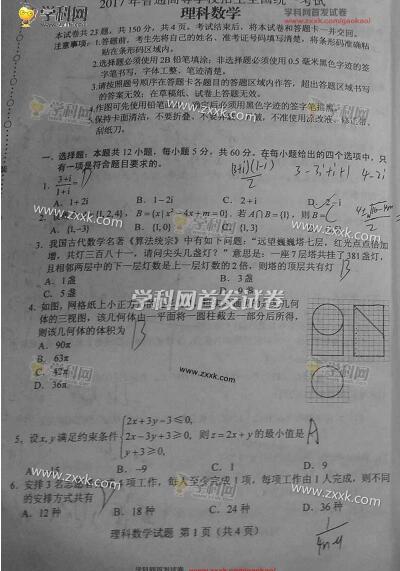 学科网首发试卷
www.zxxk.com/gaokao/
学科网
www.zxxk.com
2017年普通高等学校招生全国统一考试
理科数学
本试卷共23题,共150分,共4页。考试结束后,将本试卷和答题卡一并交回。
注意事项:1.答题前,考生先将自己的姓名、准考证号码填写清楚,将条形码准确粘
贴在条形码区域内。
2.选择题必须使用2B铅笔填涂;非选择题必须使用0.5毫米黑色字迹的签
字笔书写,字体工整、笔迹清楚。
3.请按照题号顺序在答题卡各题目的答题区域内作答,超出答题区域书写
的答案无效;在草稿纸、试卷上答题无效。
4.作图可先使用铅笔画出,确定后必须用黑色字迹的签字笔描黑。
5.保持卡面清洁,不要折叠,不要弄破、弄皱,不准使用涂改液、修正带、
刮纸刀。
一、选择题:本题共12小题,每小题5分,共60分。在每小题给出的四个选项中,只
有一项是符合题目要求的。
(3+i)(1-i)
2
3-3i+i+1 4-2i
1. 3+i/1+i = D
A. 1+2i B. 1-2i C. 2+i D. 2-i
2. {1,2,4},B={x|x²-4x+m=0}.若A∩B={1},则B=
A. {1,-3} B. {1,0} C. {1,3}
3. 我国古代数学名著《算法统宗》中有如下问题:“远望巍巍塔七层,红光点点倍加
增,共灯三百八十一,请问尖头几盏灯?”意思是:一座7层塔共挂了381盏灯,
且相邻两层中的下一层灯数是上一层灯数的2倍,则塔的顶层共有灯 B
A. 1盏 B. 3盏
C. 5盏
学科网首发试卷
www.zxxk.com
4. 如图,网格纸上小正方形
的三视图,该几何体由一平面将一圆柱截去一部分后所得,
则该几何体的体积为 B
A. 90π
B. 63π
C. 42π
D. 36π
5. 设x,y满足约束条件 2x+3y-3≤0, 2x-3y+3≥0, y+3≥0, 则z=2x+y的最小值是 A
A. -15 B. -9 C. 1 D. 9
6. 安排3名志愿者完成4项工作,每人至少完成1项,每项工作由1人完成,则不同
的安排方式共有 D
A. 12种 B. 18种 C. 24种 D. 36种
理科数学试题 第1页(共4页)
学科网首发试卷
www.zxxk.com/gaokao/